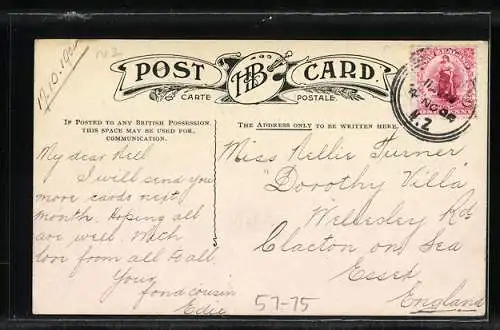 17.10.190
NZ
POST CARD.
HB
CARTE POSTALE
IF POSTED TO ANY BRITISH POSSESSION,
THIS SPACE MAY BE USED FOR
COMMUNICATION.
THE ADDRESS ONLY TO BE WRITTEN HERE.
My dear Nell
I will send you
more cards next
month. Hoping all
are well. With
love from all to all.
Your
fond cousin
Edie
Miss Nellie Turner
"Dorothy Villa"
Wellesley Rd
Clacton on Sea
Essex
England
57-75
N.Z
ONE PENNY